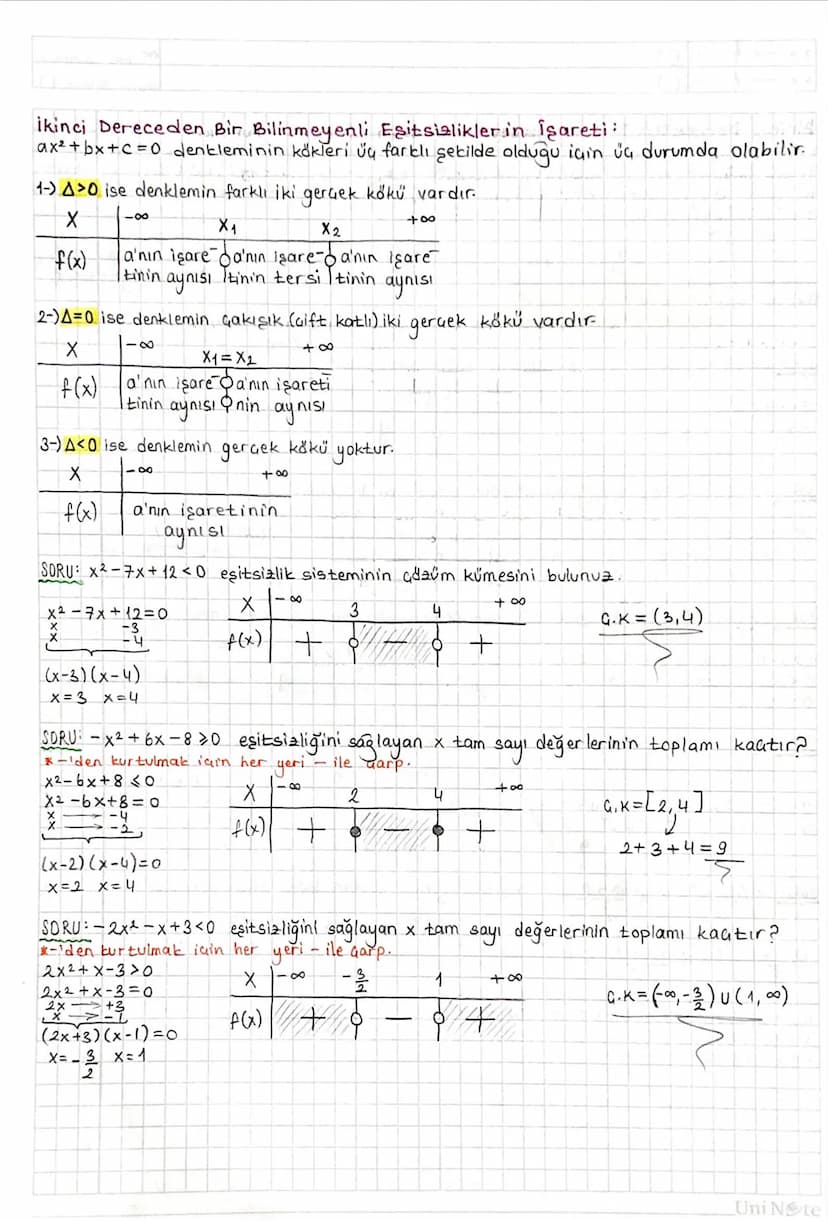 İkinci Dereceden Bir Bilinmeyenli Eşitsizliklerin İşareti:
ax²+bx+c=0 denkleminin kökleri üç farklı şekilde olduğu için üç durumda olabilir.
1-) Δ>0 ise denklemin farklı iki gerçek kökü vardır.
x -∞ x₁ x₂ +∞
f(x) a'nın işare- a'nın işare- a'nın işare-
tinin aynısı tinin tersi tinin aynısı
2-) Δ=0 ise denklemin çakışık (çift katlı) iki gerçek kökü vardır.
x -∞ x₁=x₂ +∞
f(x) a'nın işare- a'nın işareti
tinin aynısı nin aynısı
3-) Δ<0 ise denklemin gerçek kökü yoktur.
x -∞ +∞
f(x) a'nın işaretinin
aynısı
SORU: x²-7x+12<0 eşitsizlik sisteminin çözüm kümesini bulunuz.
x²-7x+12=0
x -3
x -4
(x-3)(x-4)
x=3 x=4
x -∞ 3 4 +∞
f(x) + - +
Ç.K=(3,4)
SORU: -x²+6x-8≥0 eşitsizliğini sağlayan x tam sayı değerlerinin toplamı kaçtır?
*-'den kurtulmak için her yeri - ile çarp.
x²-6x+8≤0
x²-6x+8=0
x → -4
x → -2
(x-2)(x-4)=0
x=2 x=4
x -∞ 2 4 +∞
f(x) + - +
Ç.K=[2,4]
2+3+4=9
SORU: -2x²-x+3<0 eşitsizliğini sağlayan x tam sayı değerlerinin toplamı kaçtır?
*-'den kurtulmak için her yeri - ile çarp.
2x²+x-3>0
2x²+x-3=0
2x → +3
x → -1
(2x+3)(x-1)=0
x=-3/2 x=1
x -∞ -3/2 1 +∞
f(x) + - +
Ç.K=(-∞,-3/2)∪(1,∞)
UniNote